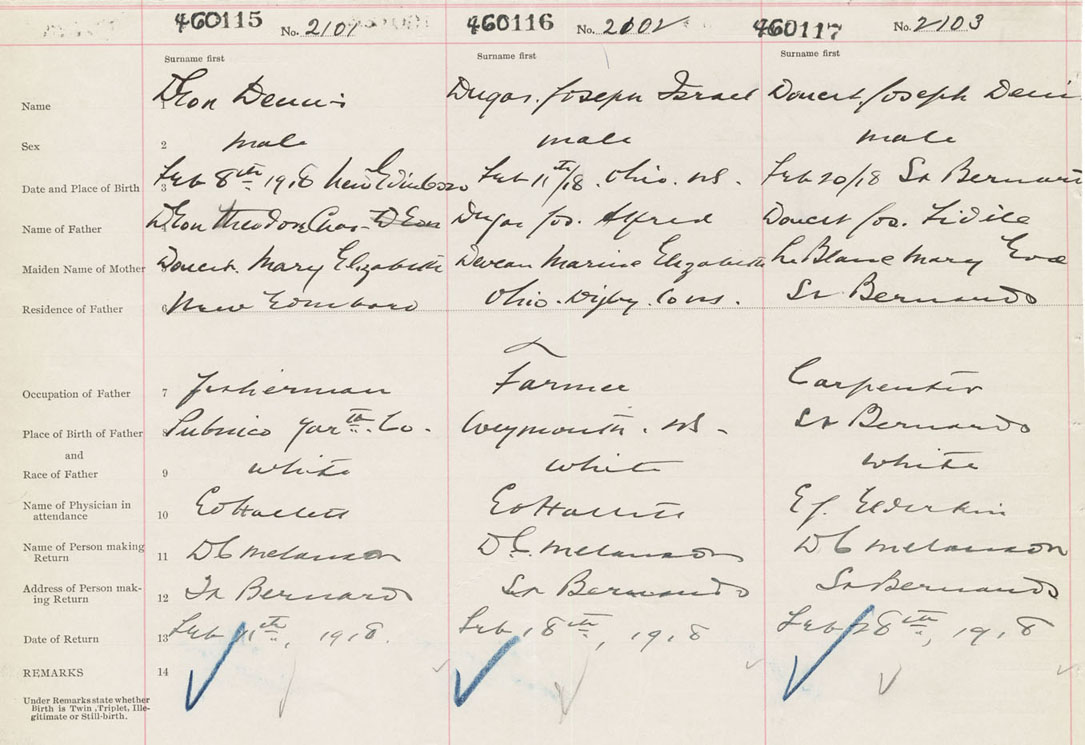 460115 No. 2101 460116 No. 2002 460117 No. 2103
Surname first Surname first Surname first
Name 1 D'Eon Dennis Dugas. Joseph Israel Doucet. Joseph Denis
Sex 2 male male male
Date and Place of Birth 3 Feb 8th 1918 New Edinboro Feb 11th/18. Ohio. NS. Feb 20/18 St Bernard
Name of Father D'Eon Theodore Chas. D'Eon Dugas Jos. Alfred Doucet Jos. Fidele
Maiden Name of Mother Doucet. Mary Elizabeth Deveau Marine Elizabeth Le Blanc Mary Eve
Residence of Father 6 New Edinboro Ohio. Digby. Co NS. St Bernards
Occupation of Father 7 Fisherman Farmer Carpenter
Place of Birth of Father 8 Pubnico Yarth. Co. Weymouth. NS. St Bernards
and
Race of Father 9 white white white
Name of Physician in
attendance 10 Ed Hallett Ed Hallett E J. Elderkin
Name of Person making
Return 11 D C Melanson D C. Melanson D C Melanson
Address of Person mak-
ing Return 12 St Bernards St Bernards St Bernards
Date of Return 13 Feb 11th, 1918. Feb 18th, 1918 Feb 28th, 1918
REMARKS 14
Under Remarks state whether
Birth is Twin, Triplet, Ille-
gitimate or Still-birth.